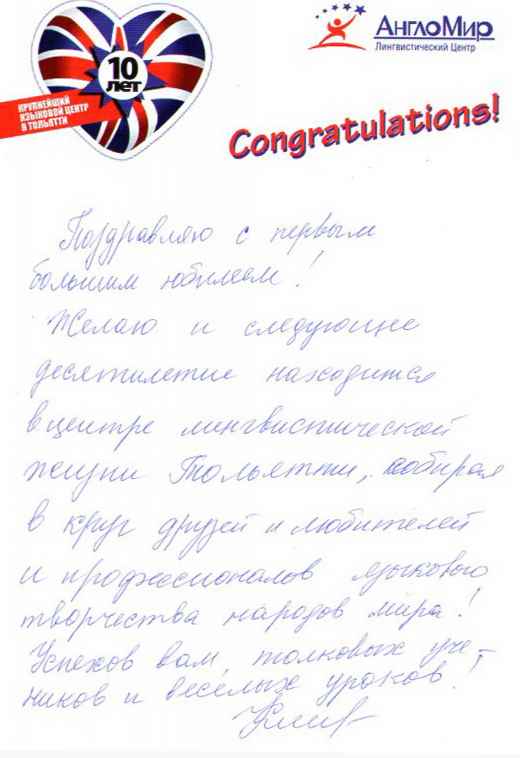 10
ЛЕТ
КРУПНЕЙШИЙ
ЯЗЫКОВОЙ ЦЕНТР
В ТОЛЬЯТТИ
АнглоМир
Лингвистический Центр
Congratulations!
Поздравляю с первым
большим юбилеем!
Желаю и следующие
десятилетие находится
в центре лингвистической
жизни Тольятти, собирая
в круг друзей и любителей
и профессионалов языкового
творчества народов мира!
Успехов вам, толковых уче-
ников и весёлых уроков!